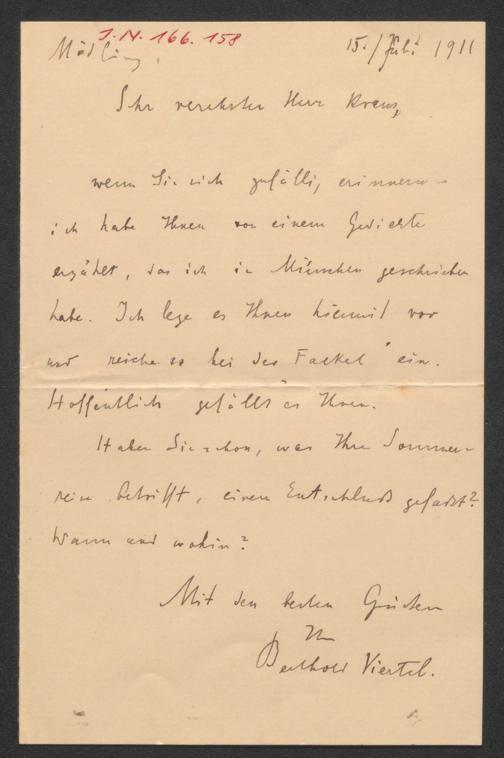 J.N. 166.158
Mödling, 15. / Juli 1911
Sehr verehrter Herr Kraus,
wenn Sie sich gefällig erinnern –
ich habe Ihnen von einem Gedichte
erzählt, das ich in München geschrieben
habe. Ich lege es Ihnen hiemit vor
und reiche es bei der „Fackel“ ein.
Hoffentlich gefällt es Ihnen.
Haben Sie schon, was Ihre Sommer-
reise betrifft, einen Entschluß gefaßt?
Wann und wohin?
Mit den besten Grüßen
Ihr
Berthold Viertel.